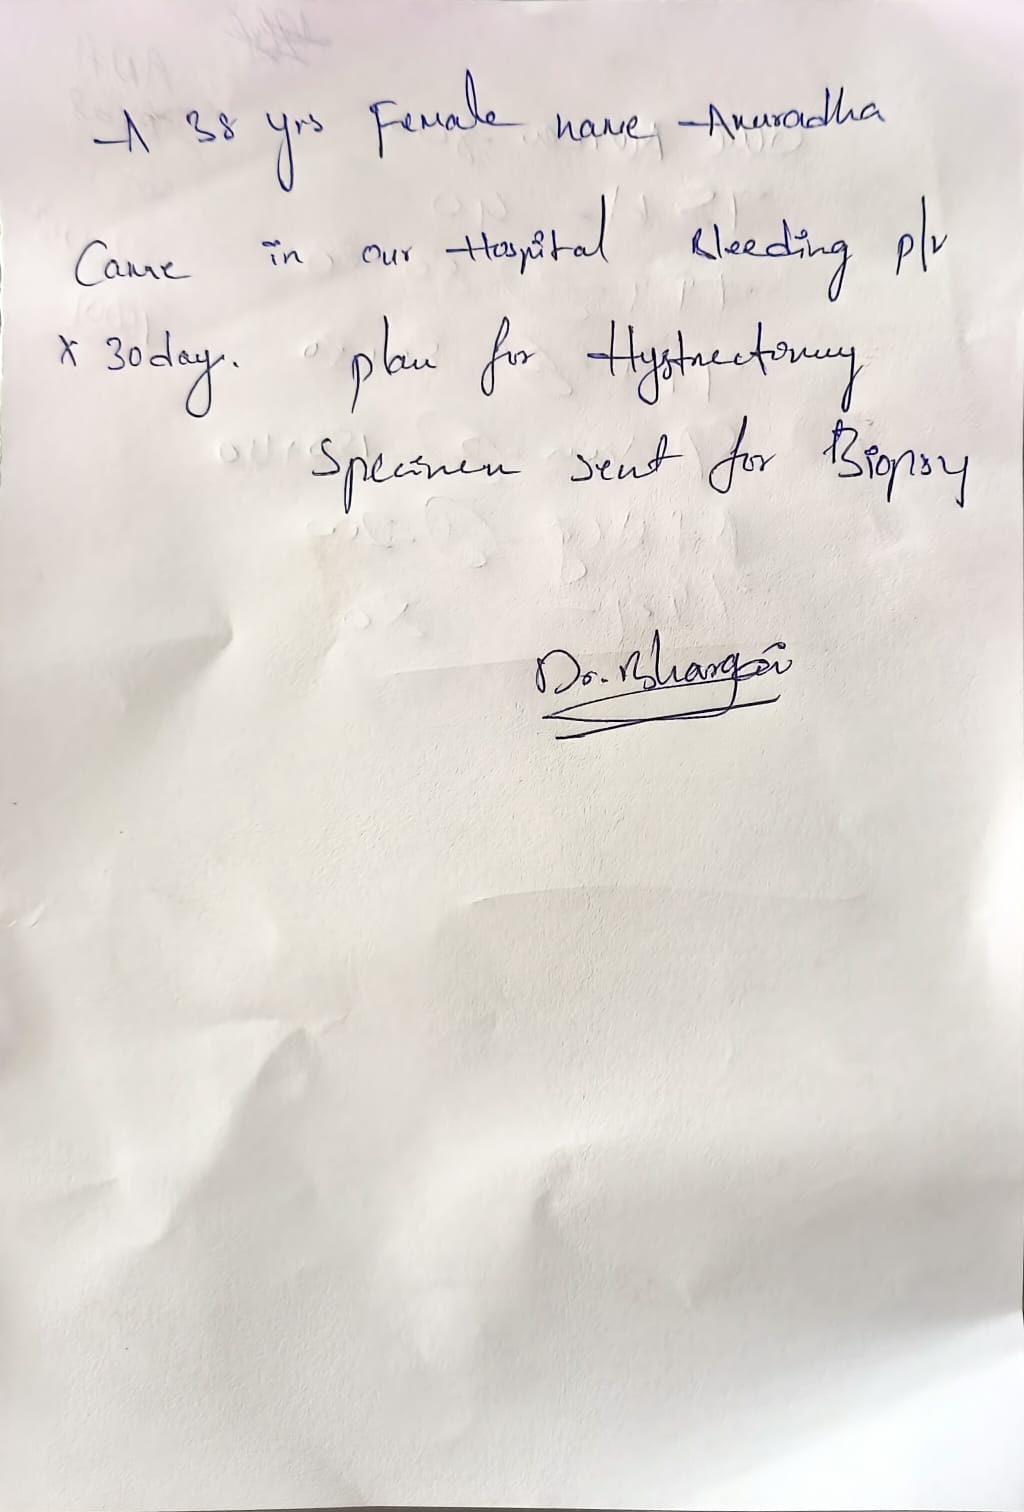 A 38 yrs Female name Anuradha
Came in our Hospital Bleeding p/v
x 30 day. plan for Hystrectomy
Specimen sent for Biopsy
Dr. Bhargavi